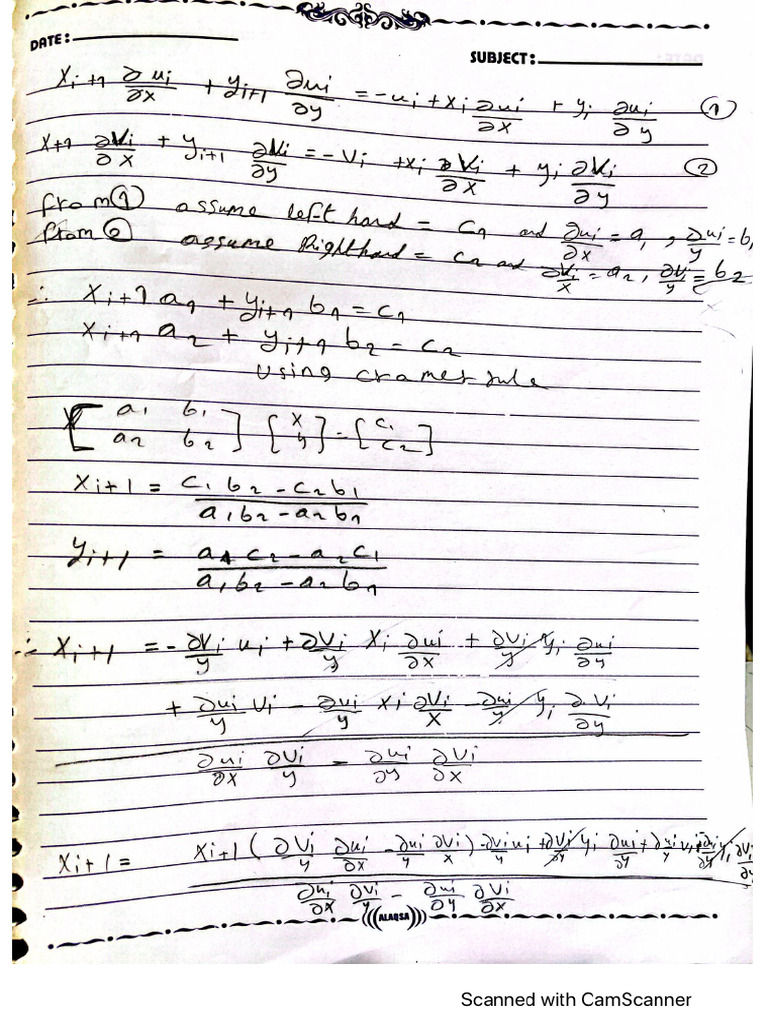 DATE:
SUBJECT:
Xi+1 ∂ui/∂x + yi+1 ∂ui/∂y = -ui + xi ∂ui/∂x + yi ∂ui/∂y (1)
X+1 ∂Vi/∂x + yi+1 ∂Vi/∂y = -Vi + xi ∂Vi/∂x + yi ∂Vi/∂y (2)
from (1) assume left hand = c1 and ∂ui/∂x = a1 , ∂ui/y = b1
from (2) assume Righthand = c2 and ∂Vi/x = a2 , ∂Vi/y = b2
∴ Xi+1 a1 + yi+1 b1 = c1
Xi+1 a2 + yi+1 b2 = c2
using cramer rule
[a1 b1 / a2 b2] [x / y] = [c1 / c2]
Xi+1 = (c1 b2 - c2 b1) / (a1 b2 - a2 b1)
yi+1 = (a1 c2 - a2 c1) / (a1 b2 - a2 b1)
∴ Xi+1 = -∂Vi/y ui + ∂Vi/y Xi ∂ui/∂x + ∂Vi/y yi ∂ui/∂y
+ ∂ui/y Vi - ∂ui/y Xi ∂Vi/x - ∂ui/y yi ∂Vi/∂y
∂ui/∂x ∂Vi/y - ∂ui/∂y ∂Vi/∂x
Xi+1 = Xi+1 ( ∂Vi/y ∂ui/∂x - ∂ui/y ∂Vi/x ) - ∂Vi/y ui + ∂Vi/∂y yi ∂ui/∂y + ∂ui/y Vi
∂ui/∂x ∂Vi/y - ∂ui/∂y ∂Vi/∂x
ALAQSA
Scanned with CamScanner